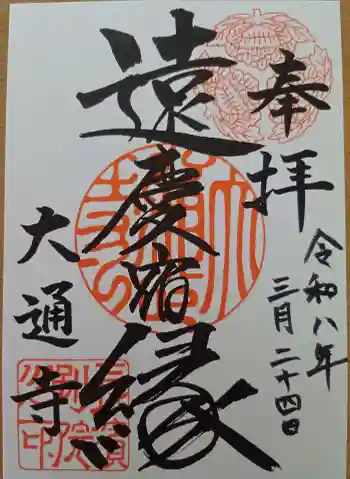 奉拝
令和八年
三月二十四日
遠慶宿縁
大通寺